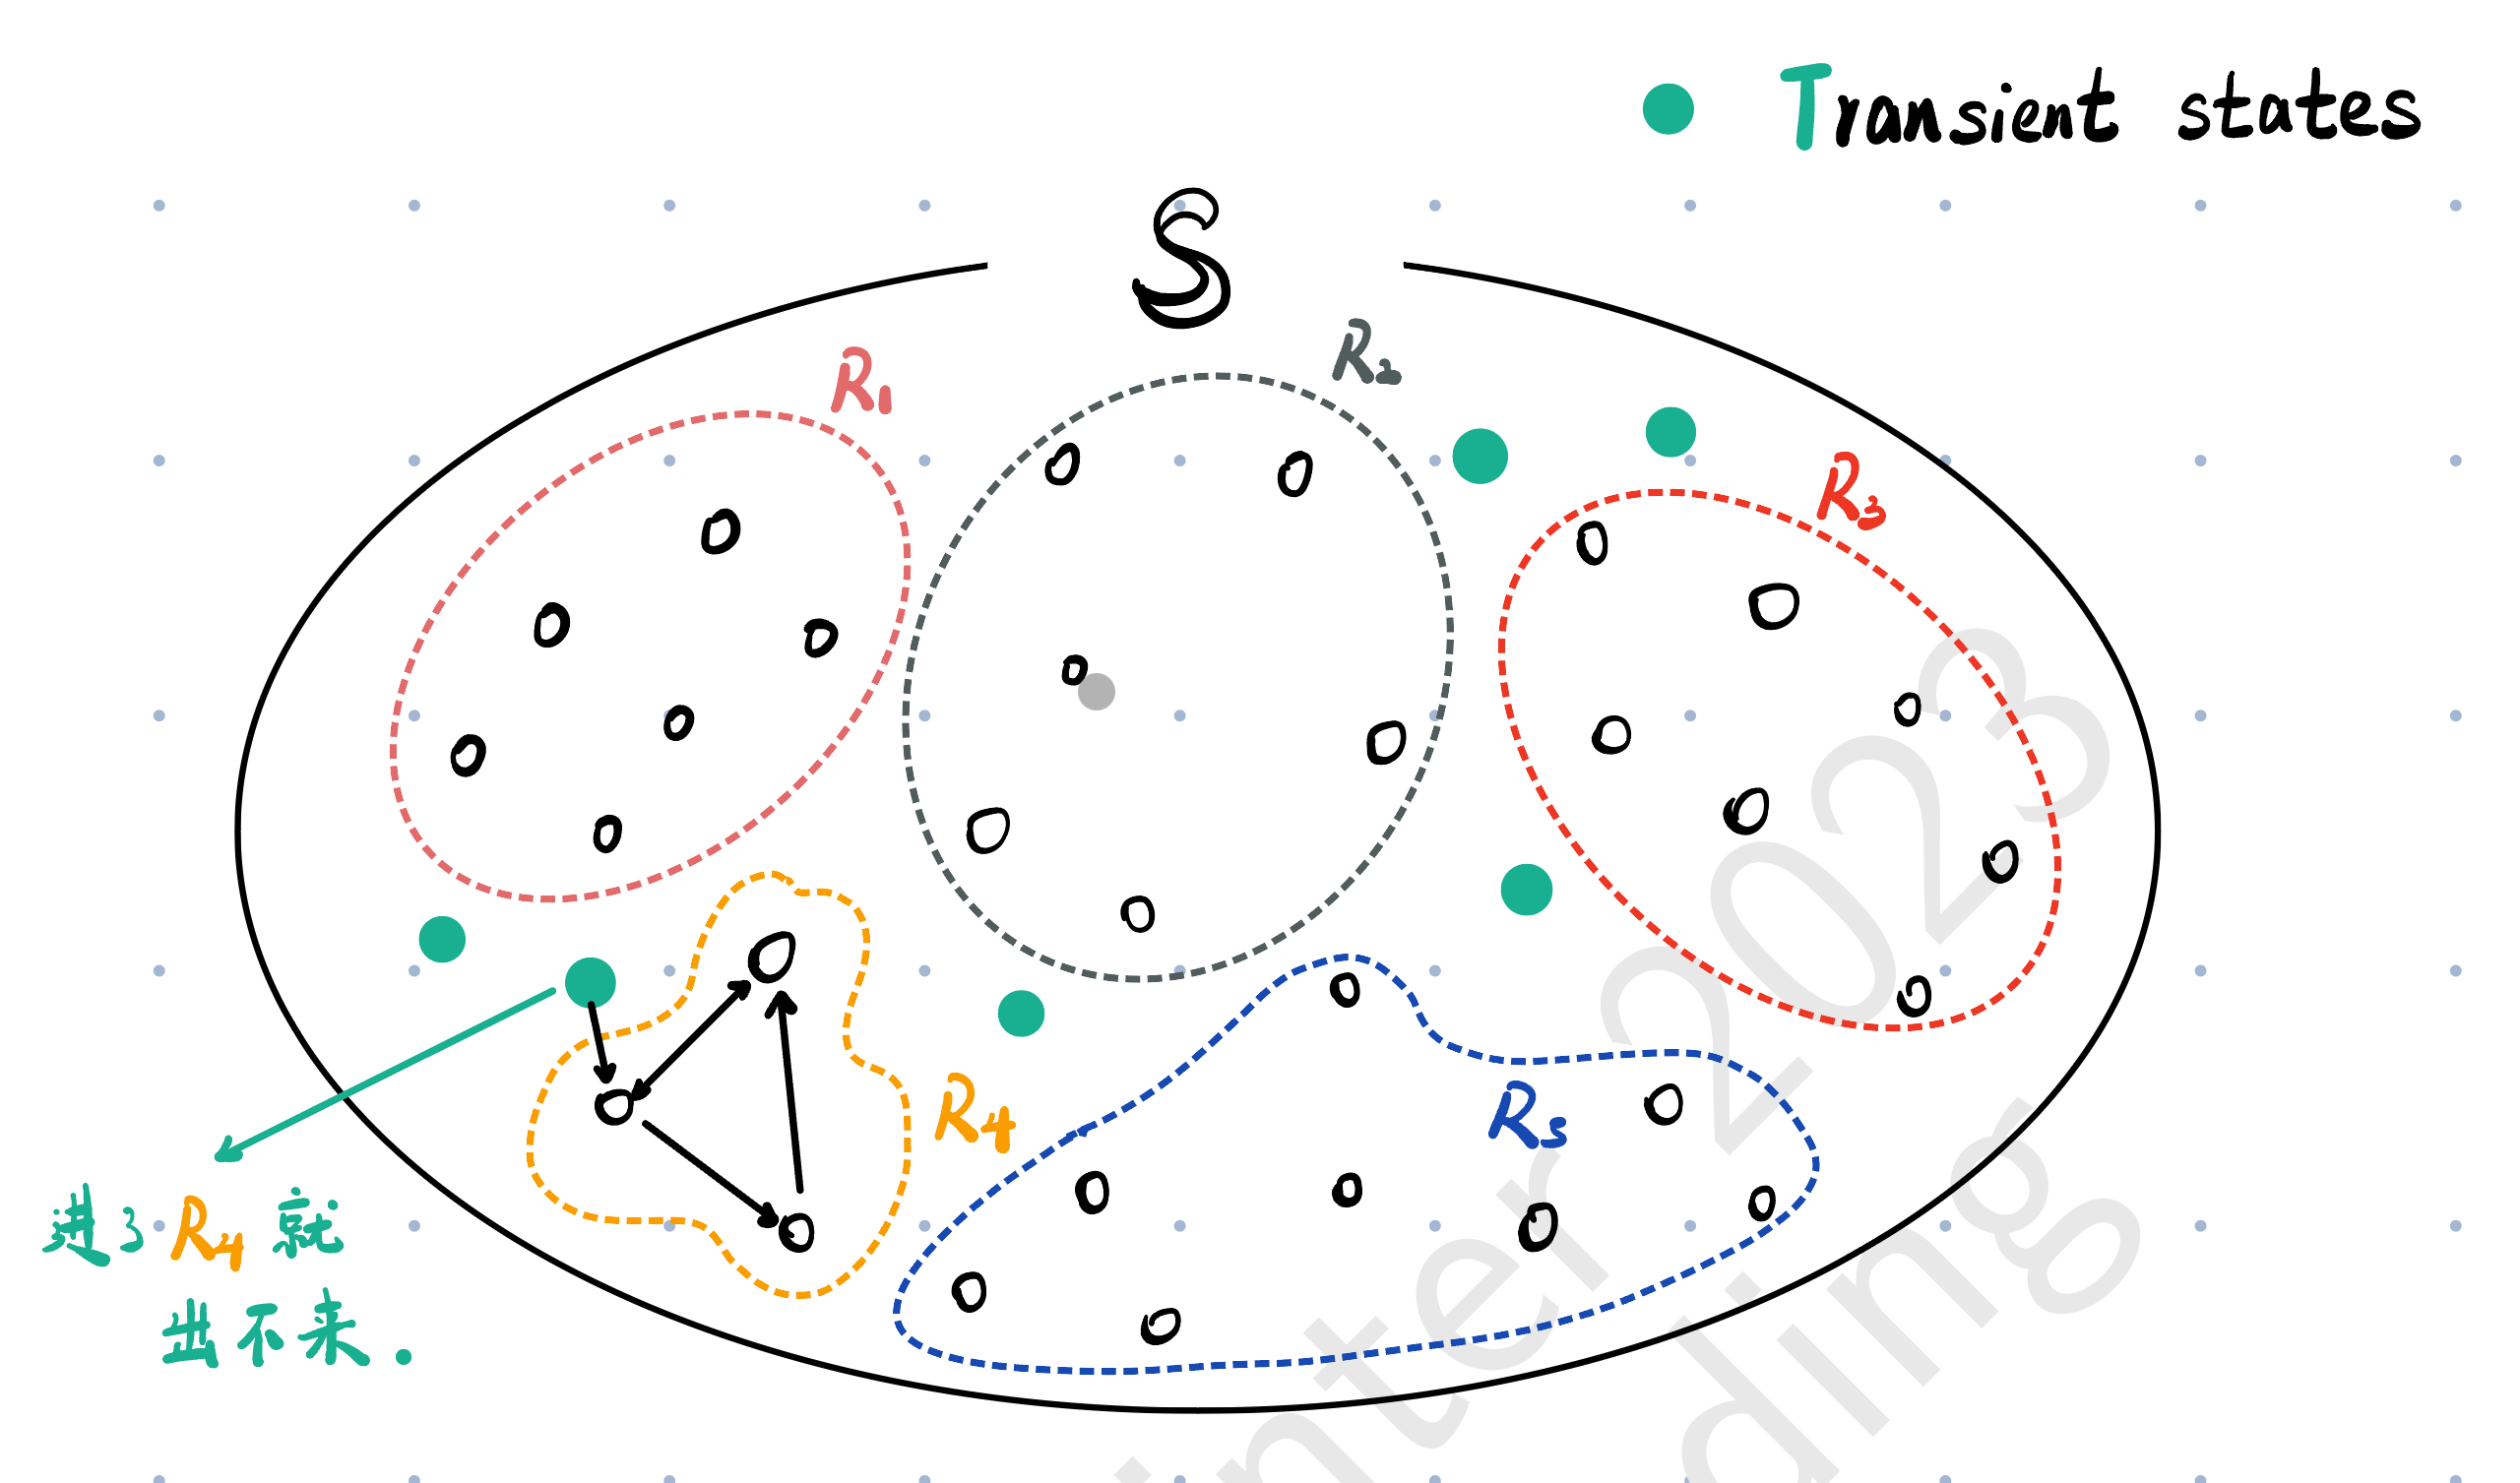 Transient states
S
R1
R2
R3
R4
R5
进了R4就
出不来.
2023